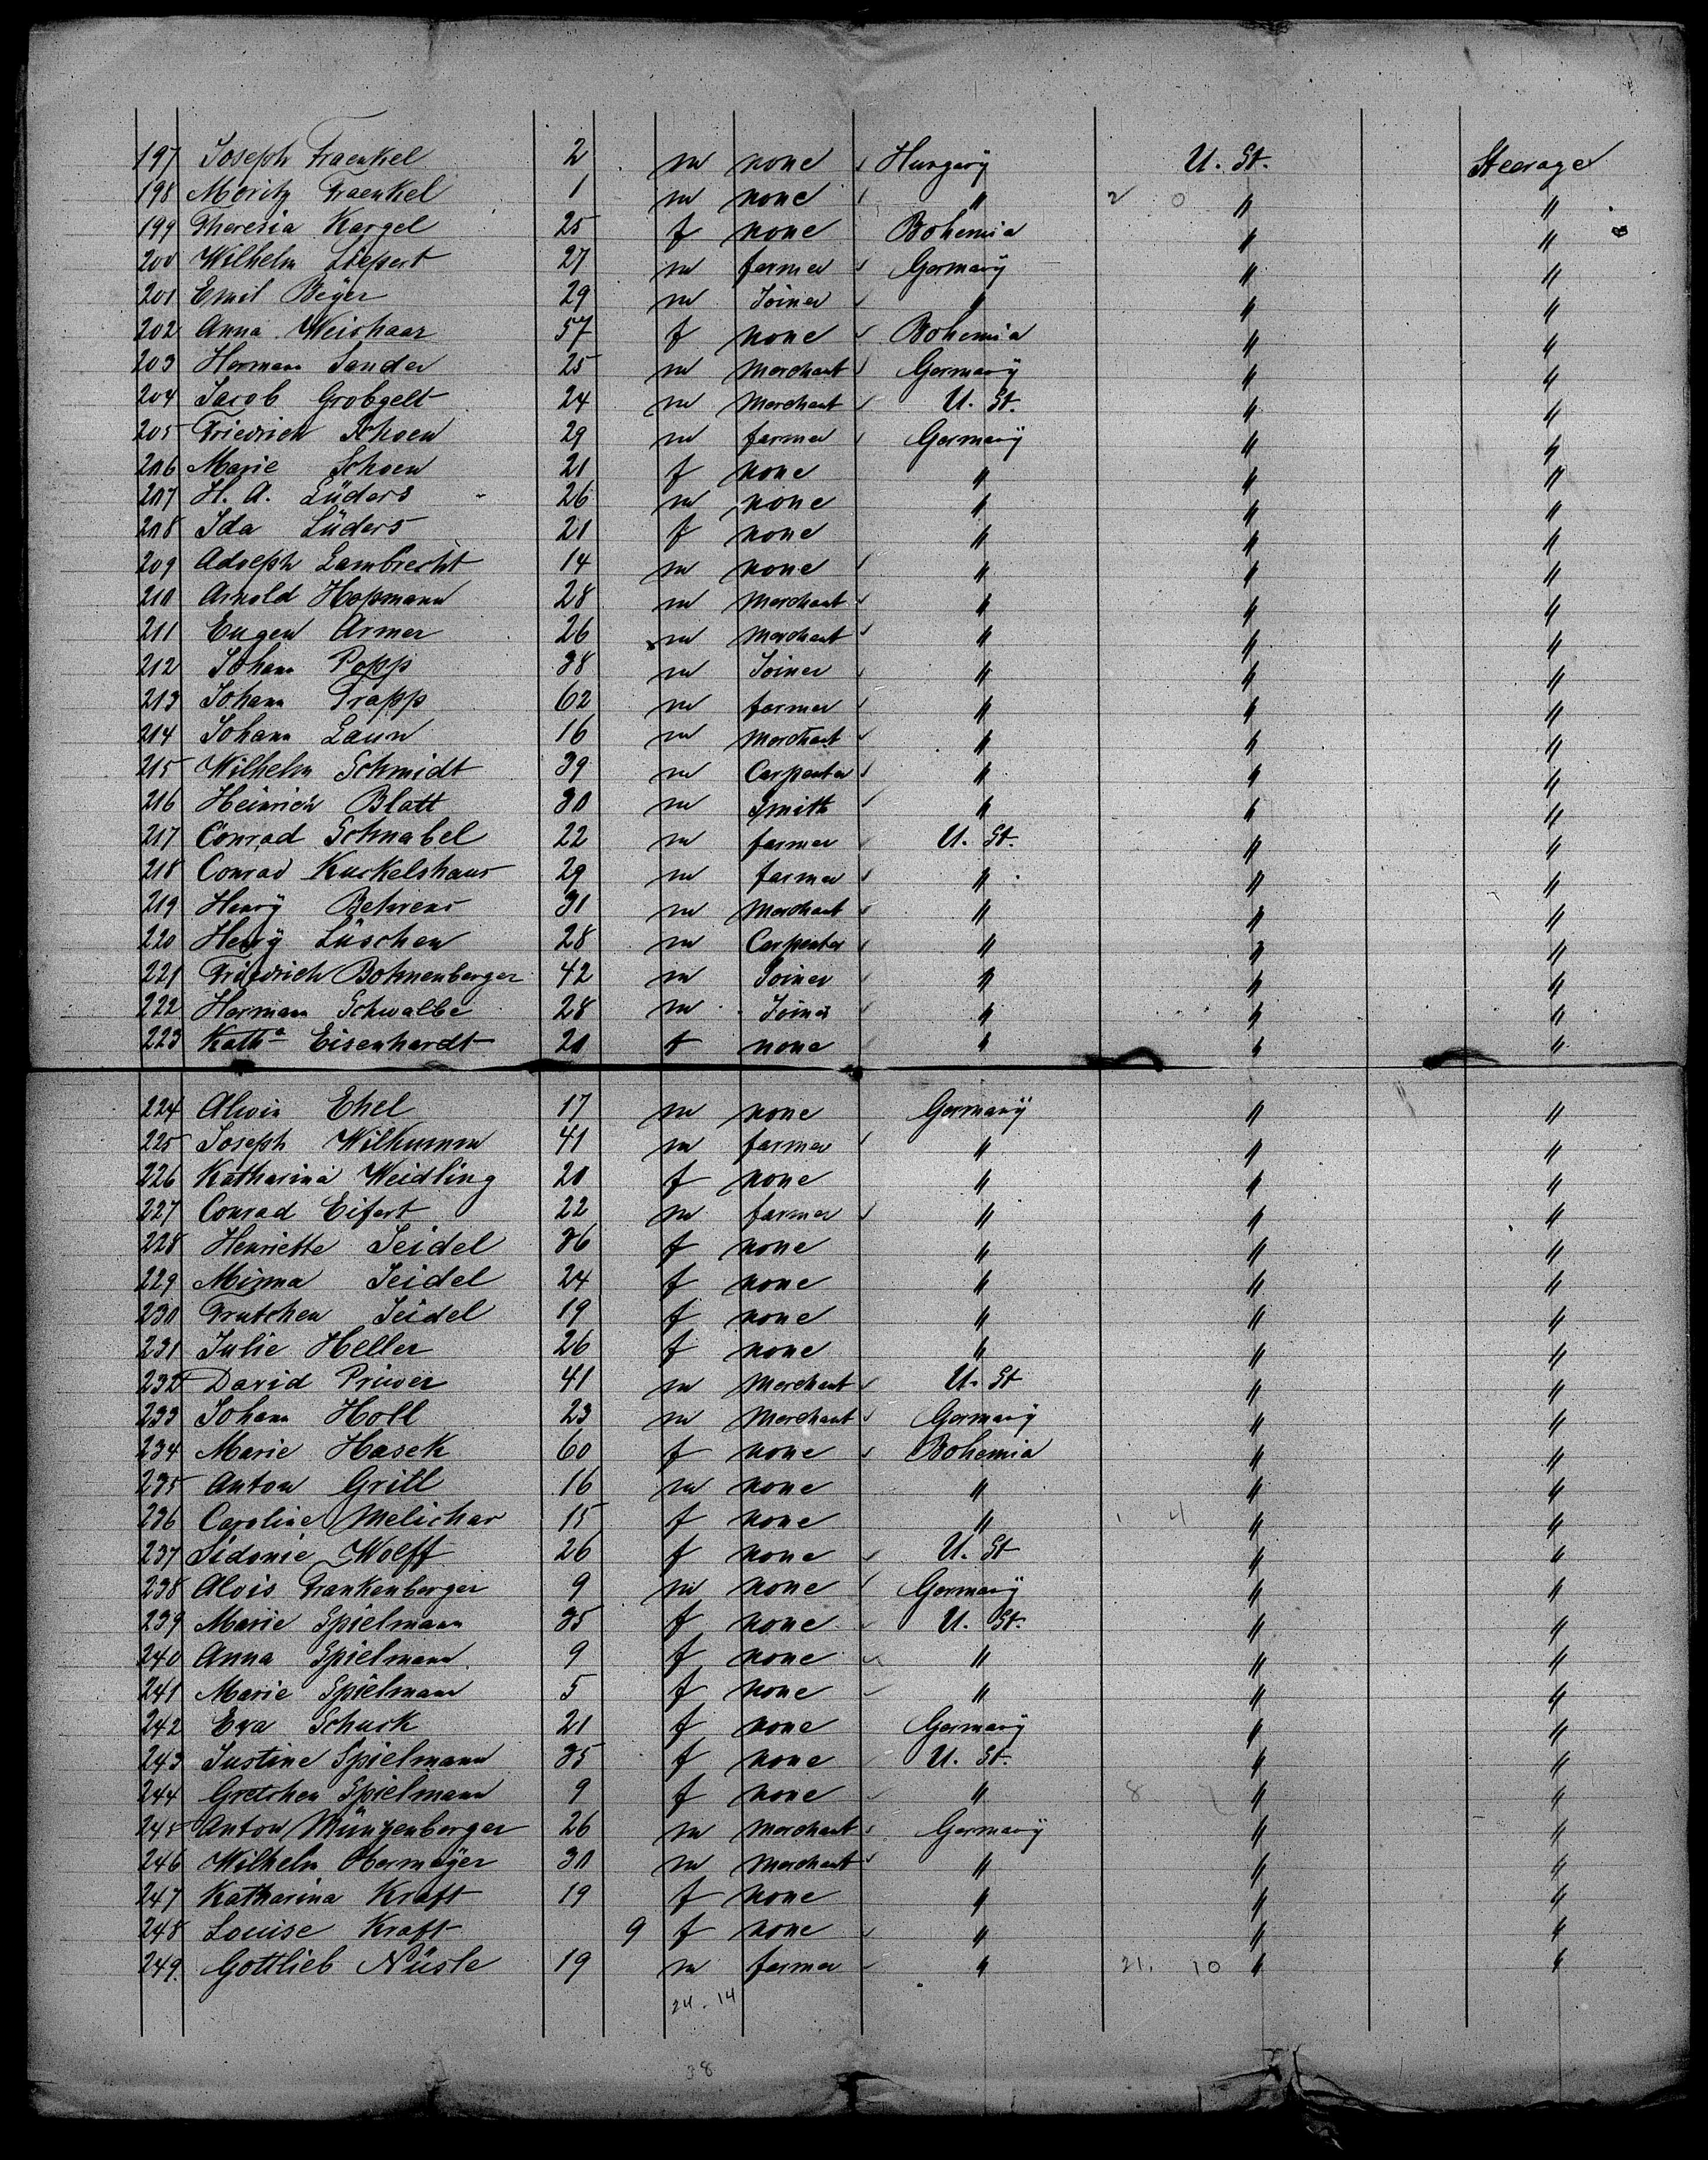 197 Joseph Fraenkel 2 m none Hungarÿ U. St. Steerage
198 Moritz Fraenkel 1 m none " 2 0 " "
199 Theresia Kargel 25 f none Bohemia " "
200 Wilhelm Liepert 27 m farmer Germanÿ " "
201 Emil Beÿer 29 m Joiner " " "
202 Anna Weishaar 57 f none Bohemia " "
203 Herman Sander 25 m Merchant Germanÿ " "
204 Jacob Grobgelt 24 m Merchant U. St. " "
205 Friedrich Schoen 29 m farmer Germanÿ " "
206 Marie Schoen 21 f none " " "
207 H. A. Lüders 26 m none " " "
208 Ida Lüders 21 f none " " "
209 Adolph Lambrecht 14 m none " " "
210 Arnold Hopmann 28 m Merchant " " "
211 Eugen Armer 26 m Merchant " " "
212 Johann Popp 38 m Joiner " " "
213 Johann Trapp 62 m farmer " " "
214 Johann Laun 16 m Merchant " " "
215 Wilhelm Schmidt 39 m Carpenter " " "
216 Heinrich Blatt 30 m Smith " " "
217 Conrad Schnabel 22 m farmer U. St. " "
218 Conrad Kuckelshaus 29 m farmer " " "
219 Henrÿ Behrens 31 m Merchant " " "
220 Henrÿ Lüschen 28 m Carpenter " " "
221 Friedrich Bohnenberger 42 m Joiner " " "
222 Herman Schwalbe 28 m Joiner " " "
223 Katha Eisenhardt 20 f none " " "
224 Alwin Ehel 17 m none Germanÿ " "
225 Joseph Wilkumm 41 m farmer " " "
226 Katharina Weidling 20 f none " " "
227 Conrad Eifert 22 m farmer " " "
228 Henriette Seidel 36 f none " " "
229 Minna Seidel 24 f none " " "
230 Trutchen Seidel 19 f none " " "
231 Julie Heller 26 f none " " "
232 David Priwer 41 m Merchant U. St " "
233 Johann Holl 23 m Merchant Germanÿ " "
234 Marie Hasek 60 f none Bohemia " "
235 Anton Grill 16 m none " " "
236 Caroline Melichar 15 f none " 4 " "
237 Sidonie Wolff 26 f none U. St " "
238 Alois Frankenberger 9 m none Germanÿ " "
239 Marie Spielmann 35 f none U. St. " "
240 Anna Spielmann 9 f none " " "
241 Marie Spielmann 5 f none " " "
242 Eva Schuck 21 f none Germanÿ " "
243 Justine Spielmann 35 f none U. St. " "
244 Gretchen Spielmann 9 f none " 8 " "
245 Anton Münzenberger 26 m Merchant Germanÿ " "
246 Wilhelm Obermeÿer 30 m Merchant " " "
247 Katharina Kraft 19 f none " " "
248 Louise Kraft 9 f none " " "
249. Gottlieb Nüsle 19 m farmer " 21. 10 " "
24. 14
38